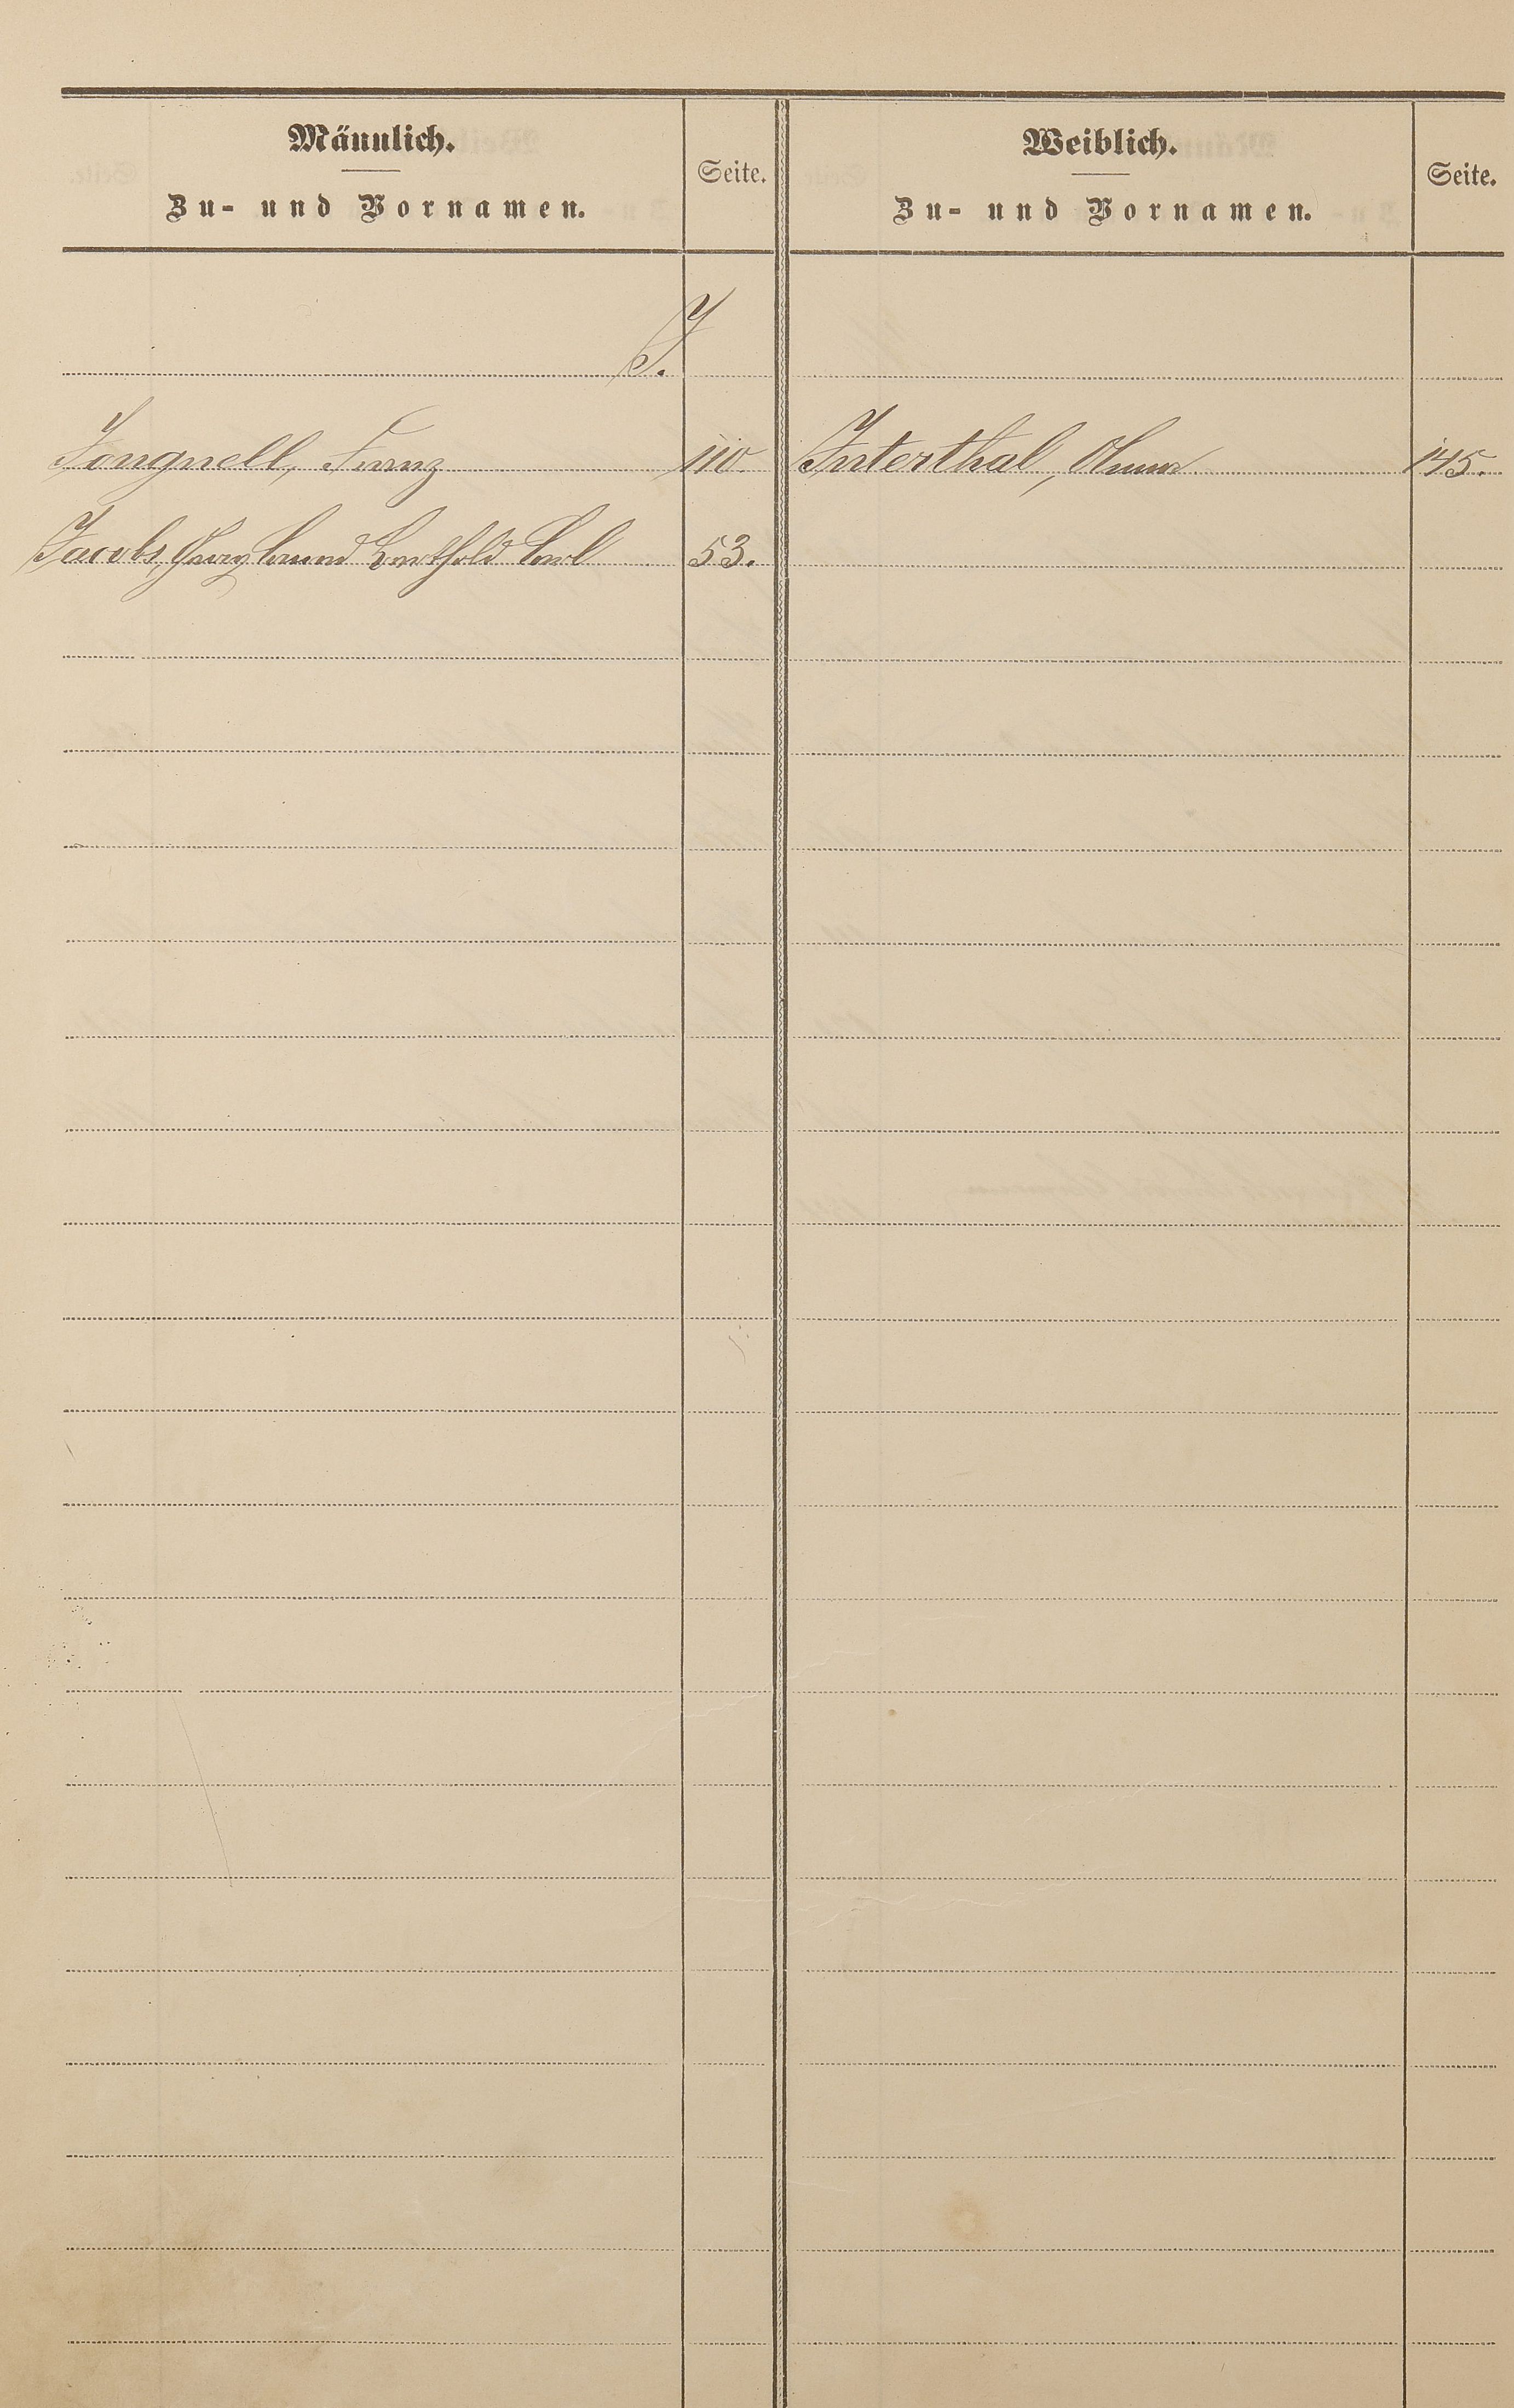 Männlich.
Zu- und Vornamen.
Seite.
Weiblich.
Zu- und Vornamen.
Seite.
J.
Jongnell, Franz 110.
Interthal, Anna 145.
Jacobs, Georg Berthold Carl 53.